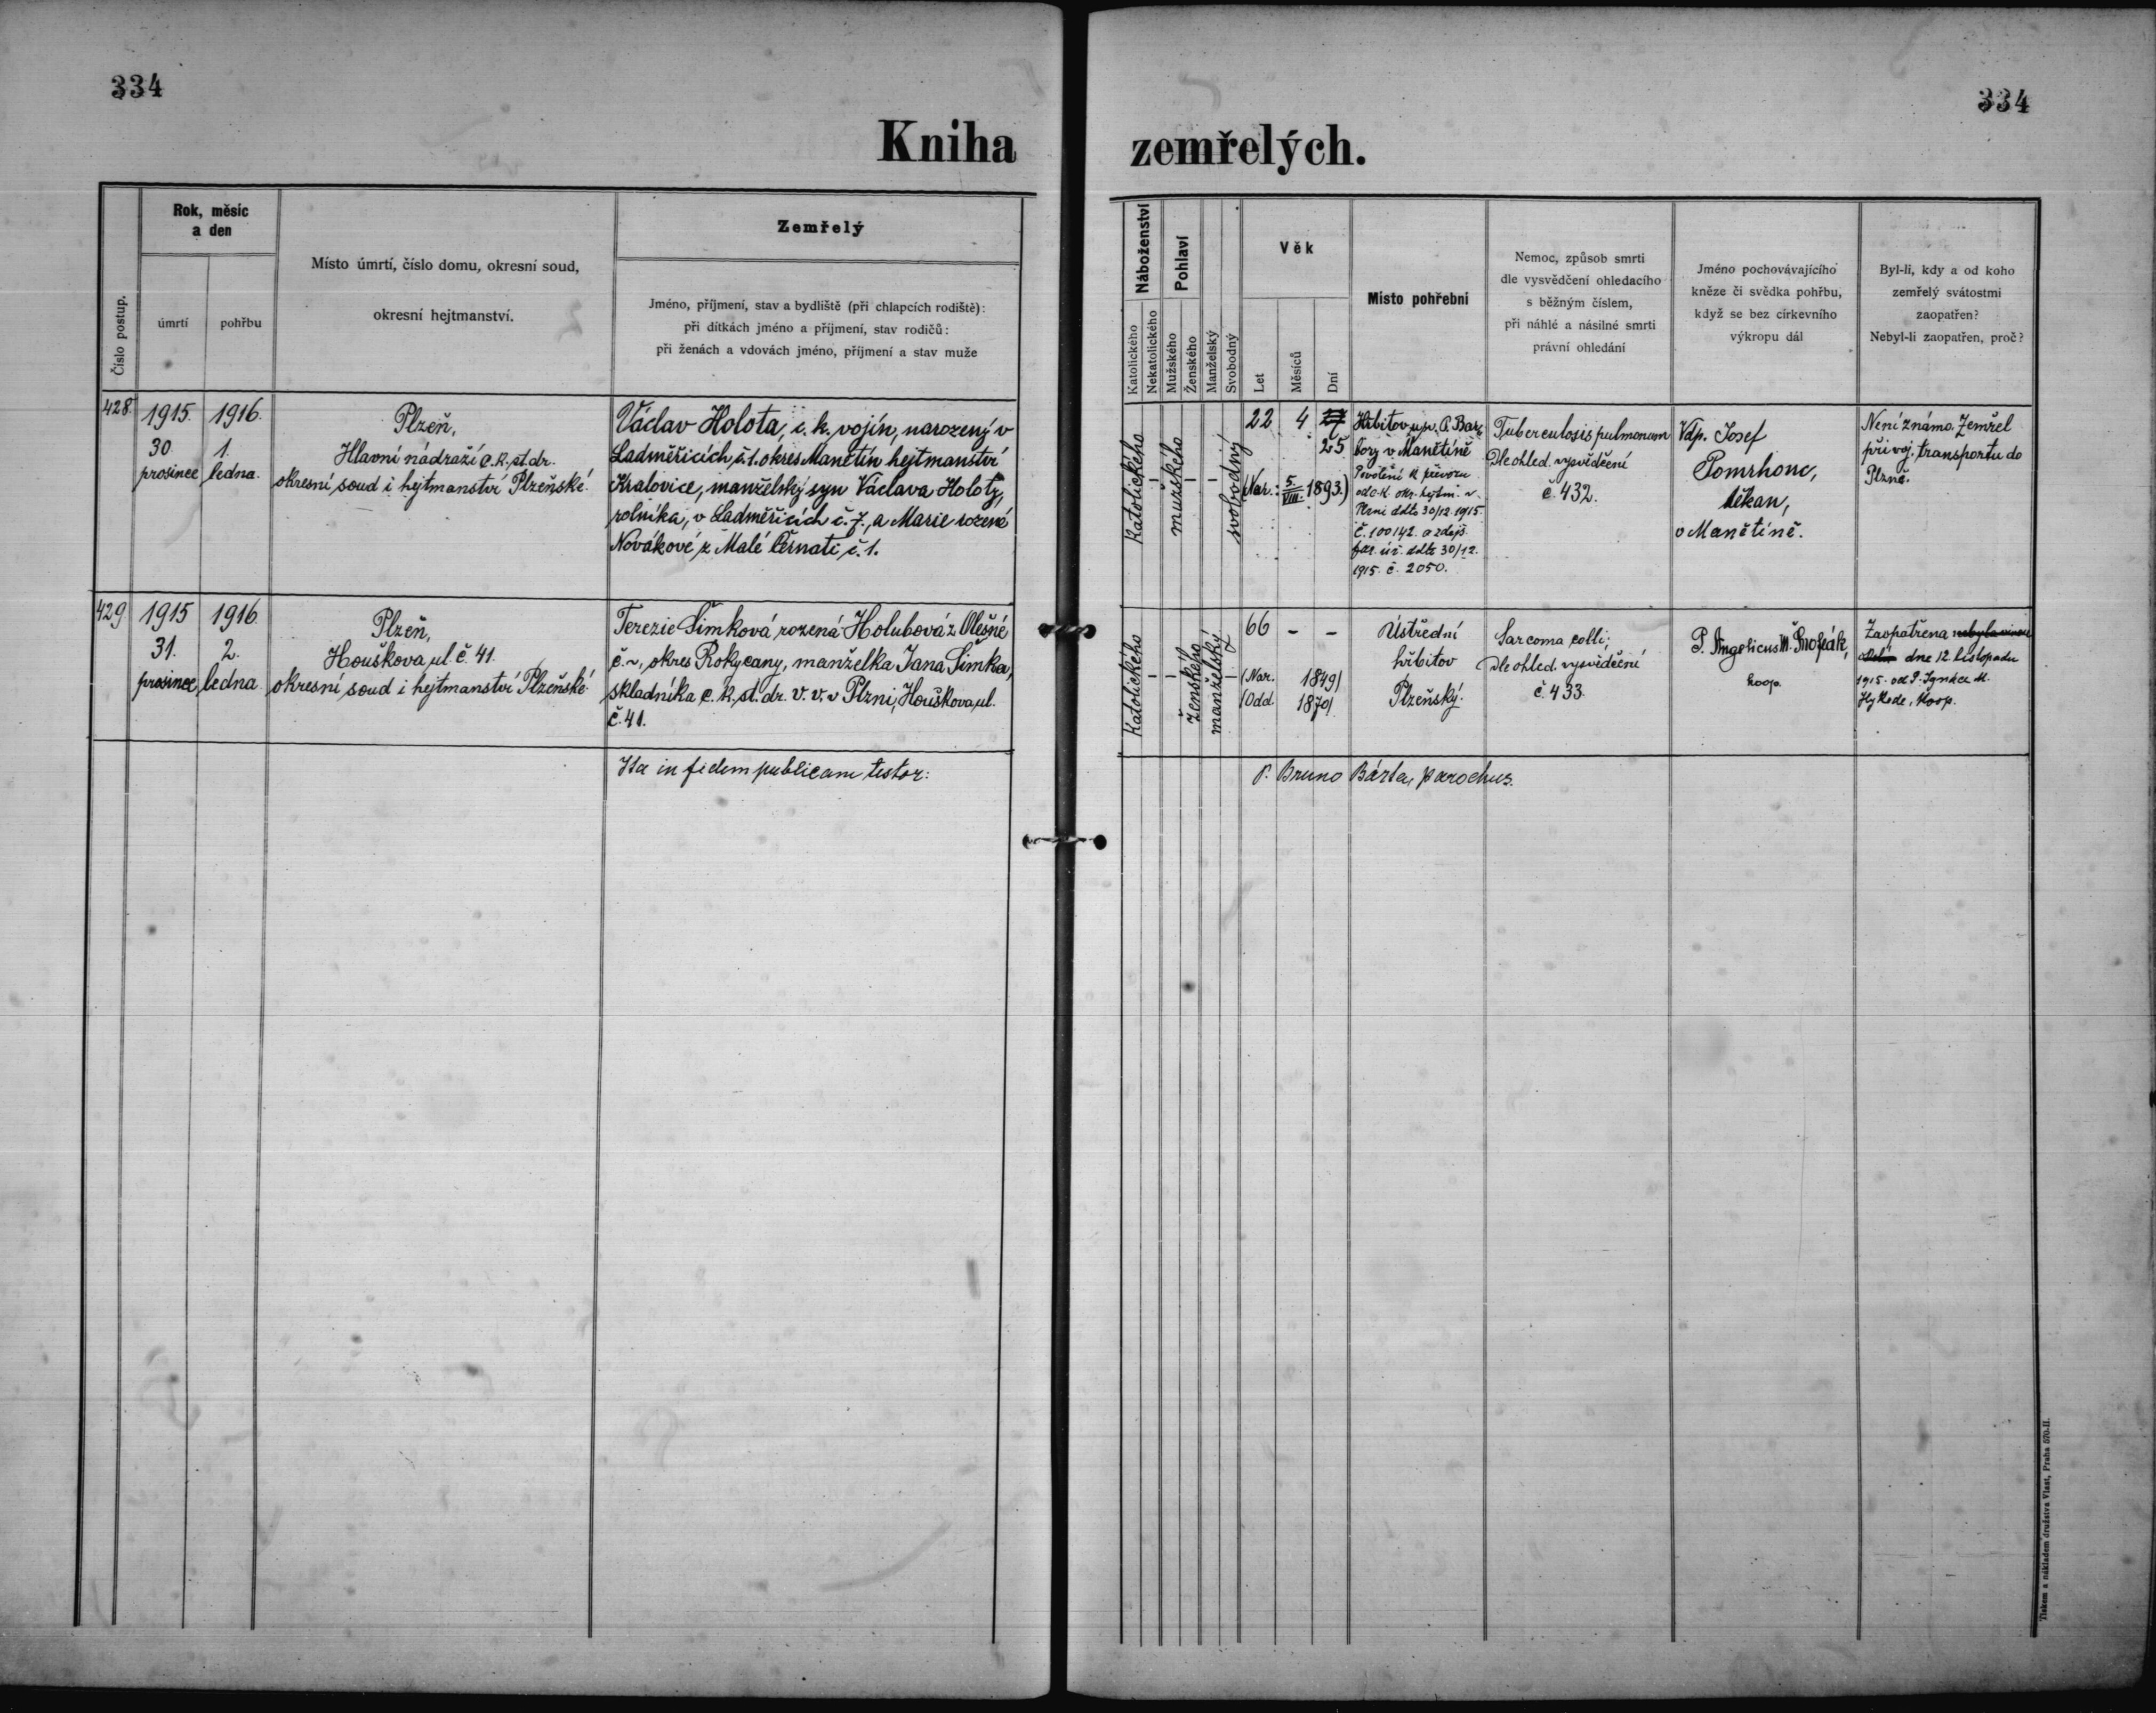 334
334
Kniha
zemřelých.
Číslo postup.
Rok, měsíc
a den
úmrtí
pohřbu
Místo úmrtí, číslo domu, okresní soud,
okresní hejtmanství.
Zemřelý
Jméno, příjmení, stav a bydliště (při chlapcích rodiště):
při dítkách jméno a příjmení, stav rodičů:
při ženách a vdovách jméno, příjmení a stav muže
Náboženství
Katolického
Nekatolického
Pohlaví
Mužského
Ženského
Manželský
Svobodný
Věk
Let
Měsíců
Dní
Místo pohřební
Nemoc, způsob smrti
dle vysvědčení ohledacího
s běžným číslem,
při náhlé a násilné smrti
právní ohledání
Jméno pochovávajícího
kněze či svědka pohřbu,
když se bez církevního
výkropu dál
Byl-li, kdy a od koho
zemřelý svátostmi
zaopatřen?
Nebyl-li zaopatřen, proč?
428.
1915.
30.
prosince
1916.
1.
ledna.
Plzeň,
Hlavní nádraží c.k. st. dr.
okresní soud i hejtmanství Plzeňské.
Václav Holota, c. k. vojín, narozený v
Ladměřicích č. 1. okres Manětín hejtmanství
Kralovice, manželský syn Václava Holoty,
rolníka, v Ladměřicích č. 7., a Marie rozené
Novákové z Malé Černati č. 1.
katolického
-
mužského
-
-
svobodný
22
4
27
25
(Nar.: 5./VIII. 1893.)
Hřbitov u sv. Bar-
bory v Manětíně
Povolení k převozu
od c.k. okr. hejtm. v
Plzni ddto 30/12. 1915
č. 100142. a zdejš.
far. úř. ddto 30/12.
1915. č. 2050.
Tuberculosis pulmonum
Dle ohled. vysvědčení
č. 432.
Vdp. Josef
Pomrhonc,
děkan,
v Manětíně.
Není známo. Zemřel
při voj. transportu do
Plzně.
429
1915
31.
prosince
1916.
2.
ledna
Plzeň,
Houškova ul. č. 41.
okresní soud i hejtmanství Plzeňské.
Terezie Šimková rozená Holubová z Olešné
č. ~, okres Rokycany, manželka Jana Šimka,
skladníka c. k. st. dr. v. v. v Plzni, Houškova ul.
č. 41.
katolického
-
-
ženského
manželský
-
66
-
-
(Nar. 1849)
(Odd. 1870)
Ústřední
hřbitov
Plzeňský.
Sarcoma colli;
Dle ohled. vysvědčení
č. 433.
P. Angelicus M.
koop.
Zaopatřena nebyla
dne 12. listopadu
1915. od P. Ignáce M.
koop.
Ita in fidem publicam testor:
P. Bruno Bárta, parochus.
Tiskem a nákladem družstva Vlast, Praha 570-II.